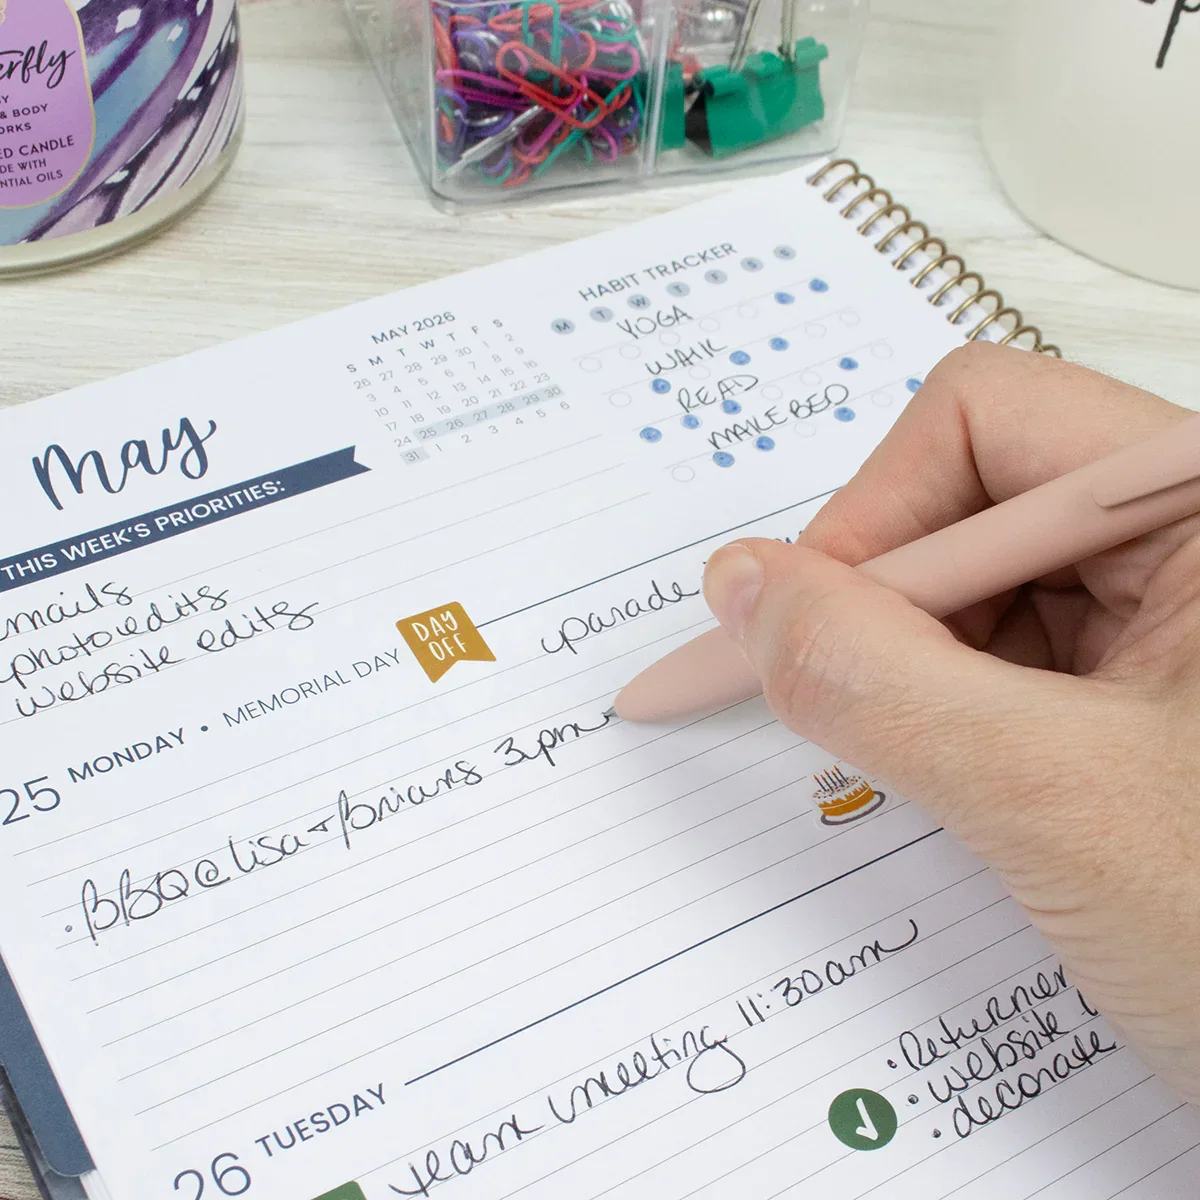 erfly
& BODY
ORKS
ED CANDLE
DE WITH
NTIAL OILS
May
THIS WEEK'S PRIORITIES:
emails
photo edits
website edits
MAY 2026
S M T W T F S
26 27 28 29 30 1 2
3 4 5 6 7 8 9
10 11 12 13 14 15 16
17 18 19 20 21 22 23
24 25 26 27 28 29 30
31 1 2 3 4 5 6
HABIT TRACKER
M T W T F S S
YOGA
WALK
READ
MAKE BED
25 MONDAY • MEMORIAL DAY
DAY
OFF
parade
• BBQ @ lisa + brians 3pm
26 TUESDAY
team meeting 11:30am
• website
• decorate